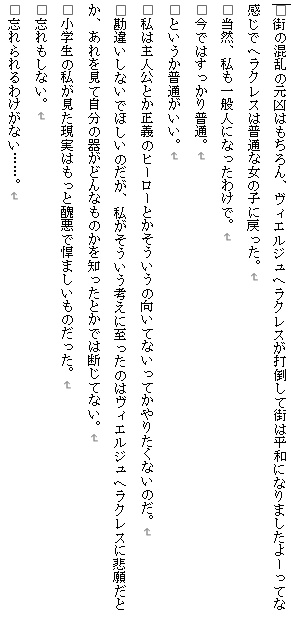 □街の混乱の元凶はもちろん、ヴィエルジュヘラクレスが打倒して街は平和になりましたよーってな
感じでヘラクレスは普通な女の子に戻った。↑
□当然、私も一般人になったわけで。↑
□今ではすっかり普通。↑
□というか普通がいい。↑
□私は主人公とか正義のヒーローとかそういうの向いてないってかやりたくないのだ。↑
□勘違いしないでほしいのだが、私がそういう考えに至ったのはヴィエルジュヘラクレスに悲願だと
か、あれを見て自分の器がどんなものかを知ったとかでは断じてない。↑
□小学生の私が見た現実はもっと醜悪で悍ましいものだった。↑
□忘れもしない。↑
□忘れられるわけがない……。↑